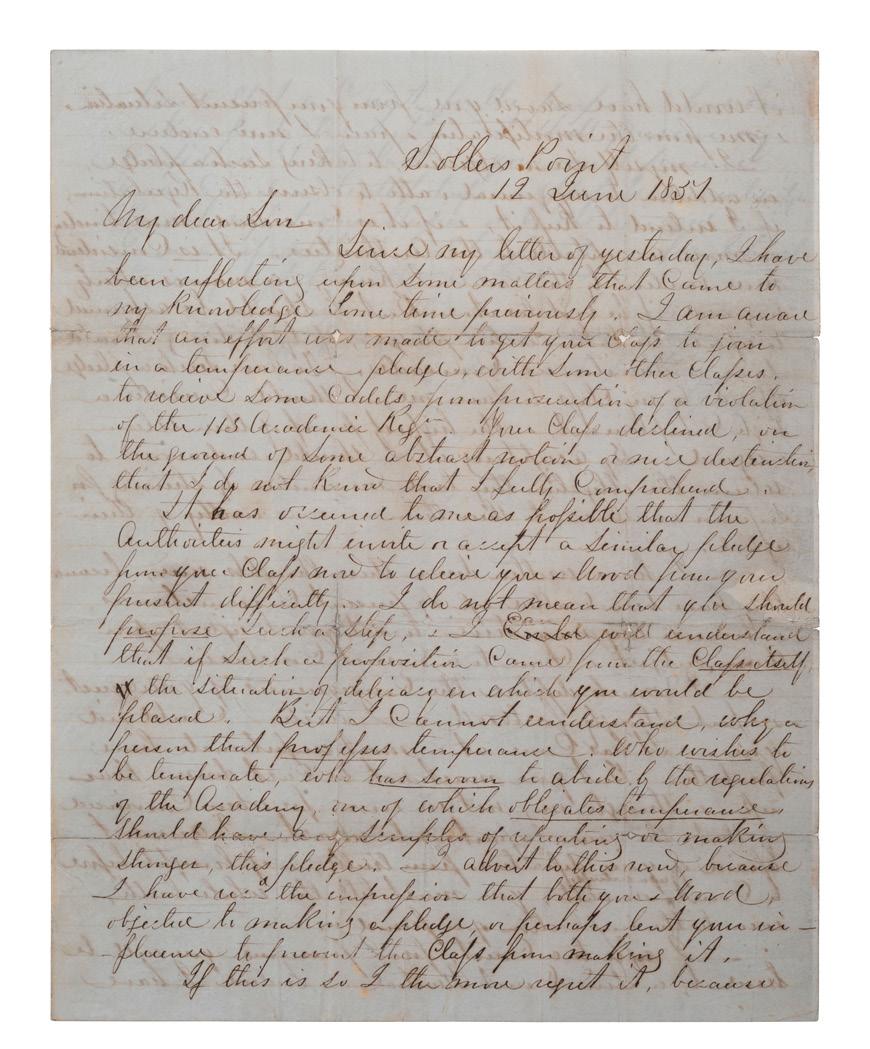 Sollers Point
12 June 1851
My dear Son
Since my letter of yesterday, I have
been reflecting upon some matters that came to
my knowledge some time previously. I am aware
that an effort was made to get your Class to join
in a temperance pledge, with some other Classes,
to relieve some Cadets from prosecution of a violation
of the 113 Academic Regn. Your Class declined, on
the ground of some abstract notion, or nice destinction,
that I do not know that I fully comprehend.
It has occured to me as possible that the
Authorities might invite or accept a similar pledge
from your Class now to relieve you & Wood from your
present difficulty. I do not mean that you should
propose such a step, & I can well understand
that if such a proposition came from the Class itself,
the situation of delicacy in which you would be
placed. But I cannot understand, why a
person that professes temperance. Who wishes to
be temperate, who has sworn to abide by the regulations
of the Academy, one of which obligates temperance
should have any scruples of repeating or making
stronger, this pledge. I advert to this now, because
I have recd the impression that both you & Wood,
objected to making a pledge, or perhaps lent your in-
-fluence to prevent the Class from making it.
If this is so I the more regret it, because